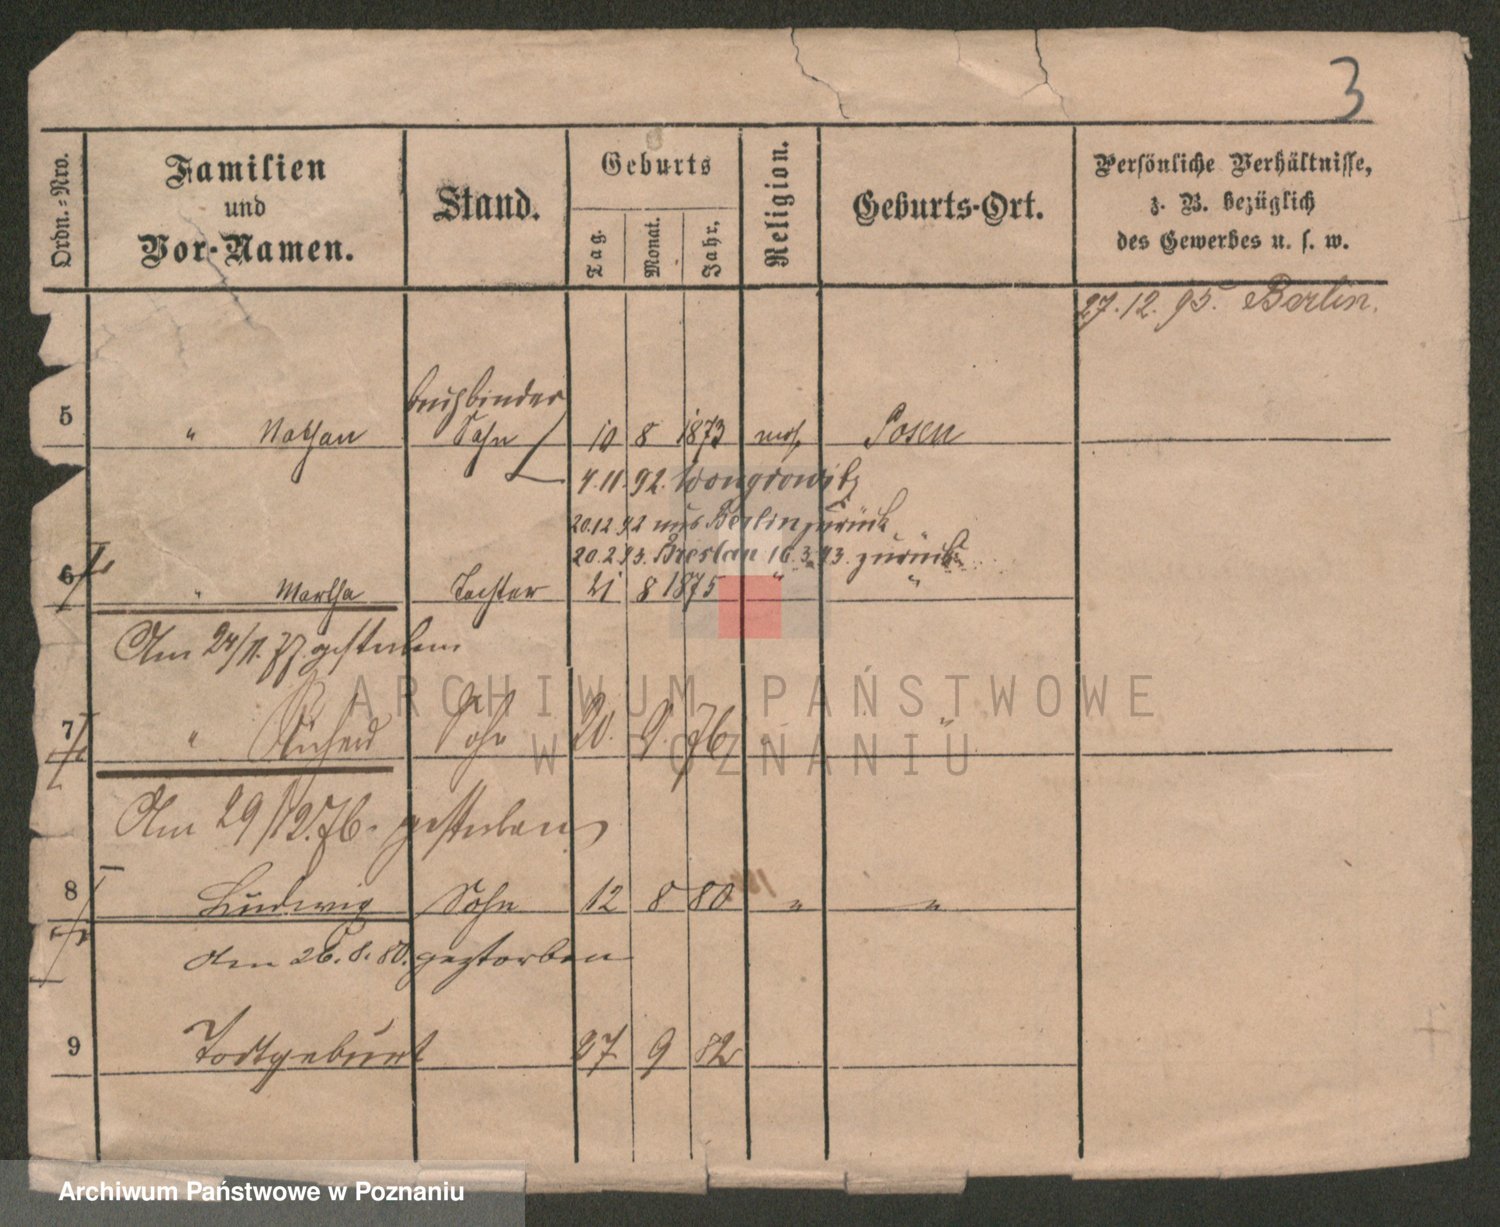 3
Ordn.-Nro.
Familien
und
Vor-Namen.
Stand.
Geburts
Tag.
Monat.
Jahr.
Religion.
Geburts-Ort.
Persönliche Verhältnisse,
z. B. bezüglich
des Gewerbes u. s. w.
27.12.95. Berlin.
buchbinder
5 " Nathan Sohn 10 8 1873 mos. Posen
4.11.92. Wongrowitz
20.12 92 aus Berlin zurück
20.2.93. Breslau 16.3.93. zurück
6 " Martha Tochter 21 8 1875 " "
Am 24/11.77. gestorben
7 " Richard Sohn 20. 9. 76 "
Am 29/12.76. gestorben
8 Ludwig Sohn 12 8 80 " "
den 26.8.80. gestorben
9 Todtgeburt 27 9 82
ARCHIWUM PAŃSTWOWE
W POZNANIU
Archiwum Państwowe w Poznaniu